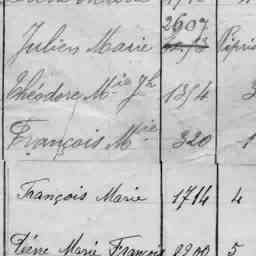 2607
Julien Marie Pipri
Théodore M.ie Jh 1354 3
François M.ie 320 1
François Marie 1714 4
Pierre Marie François 2200 5